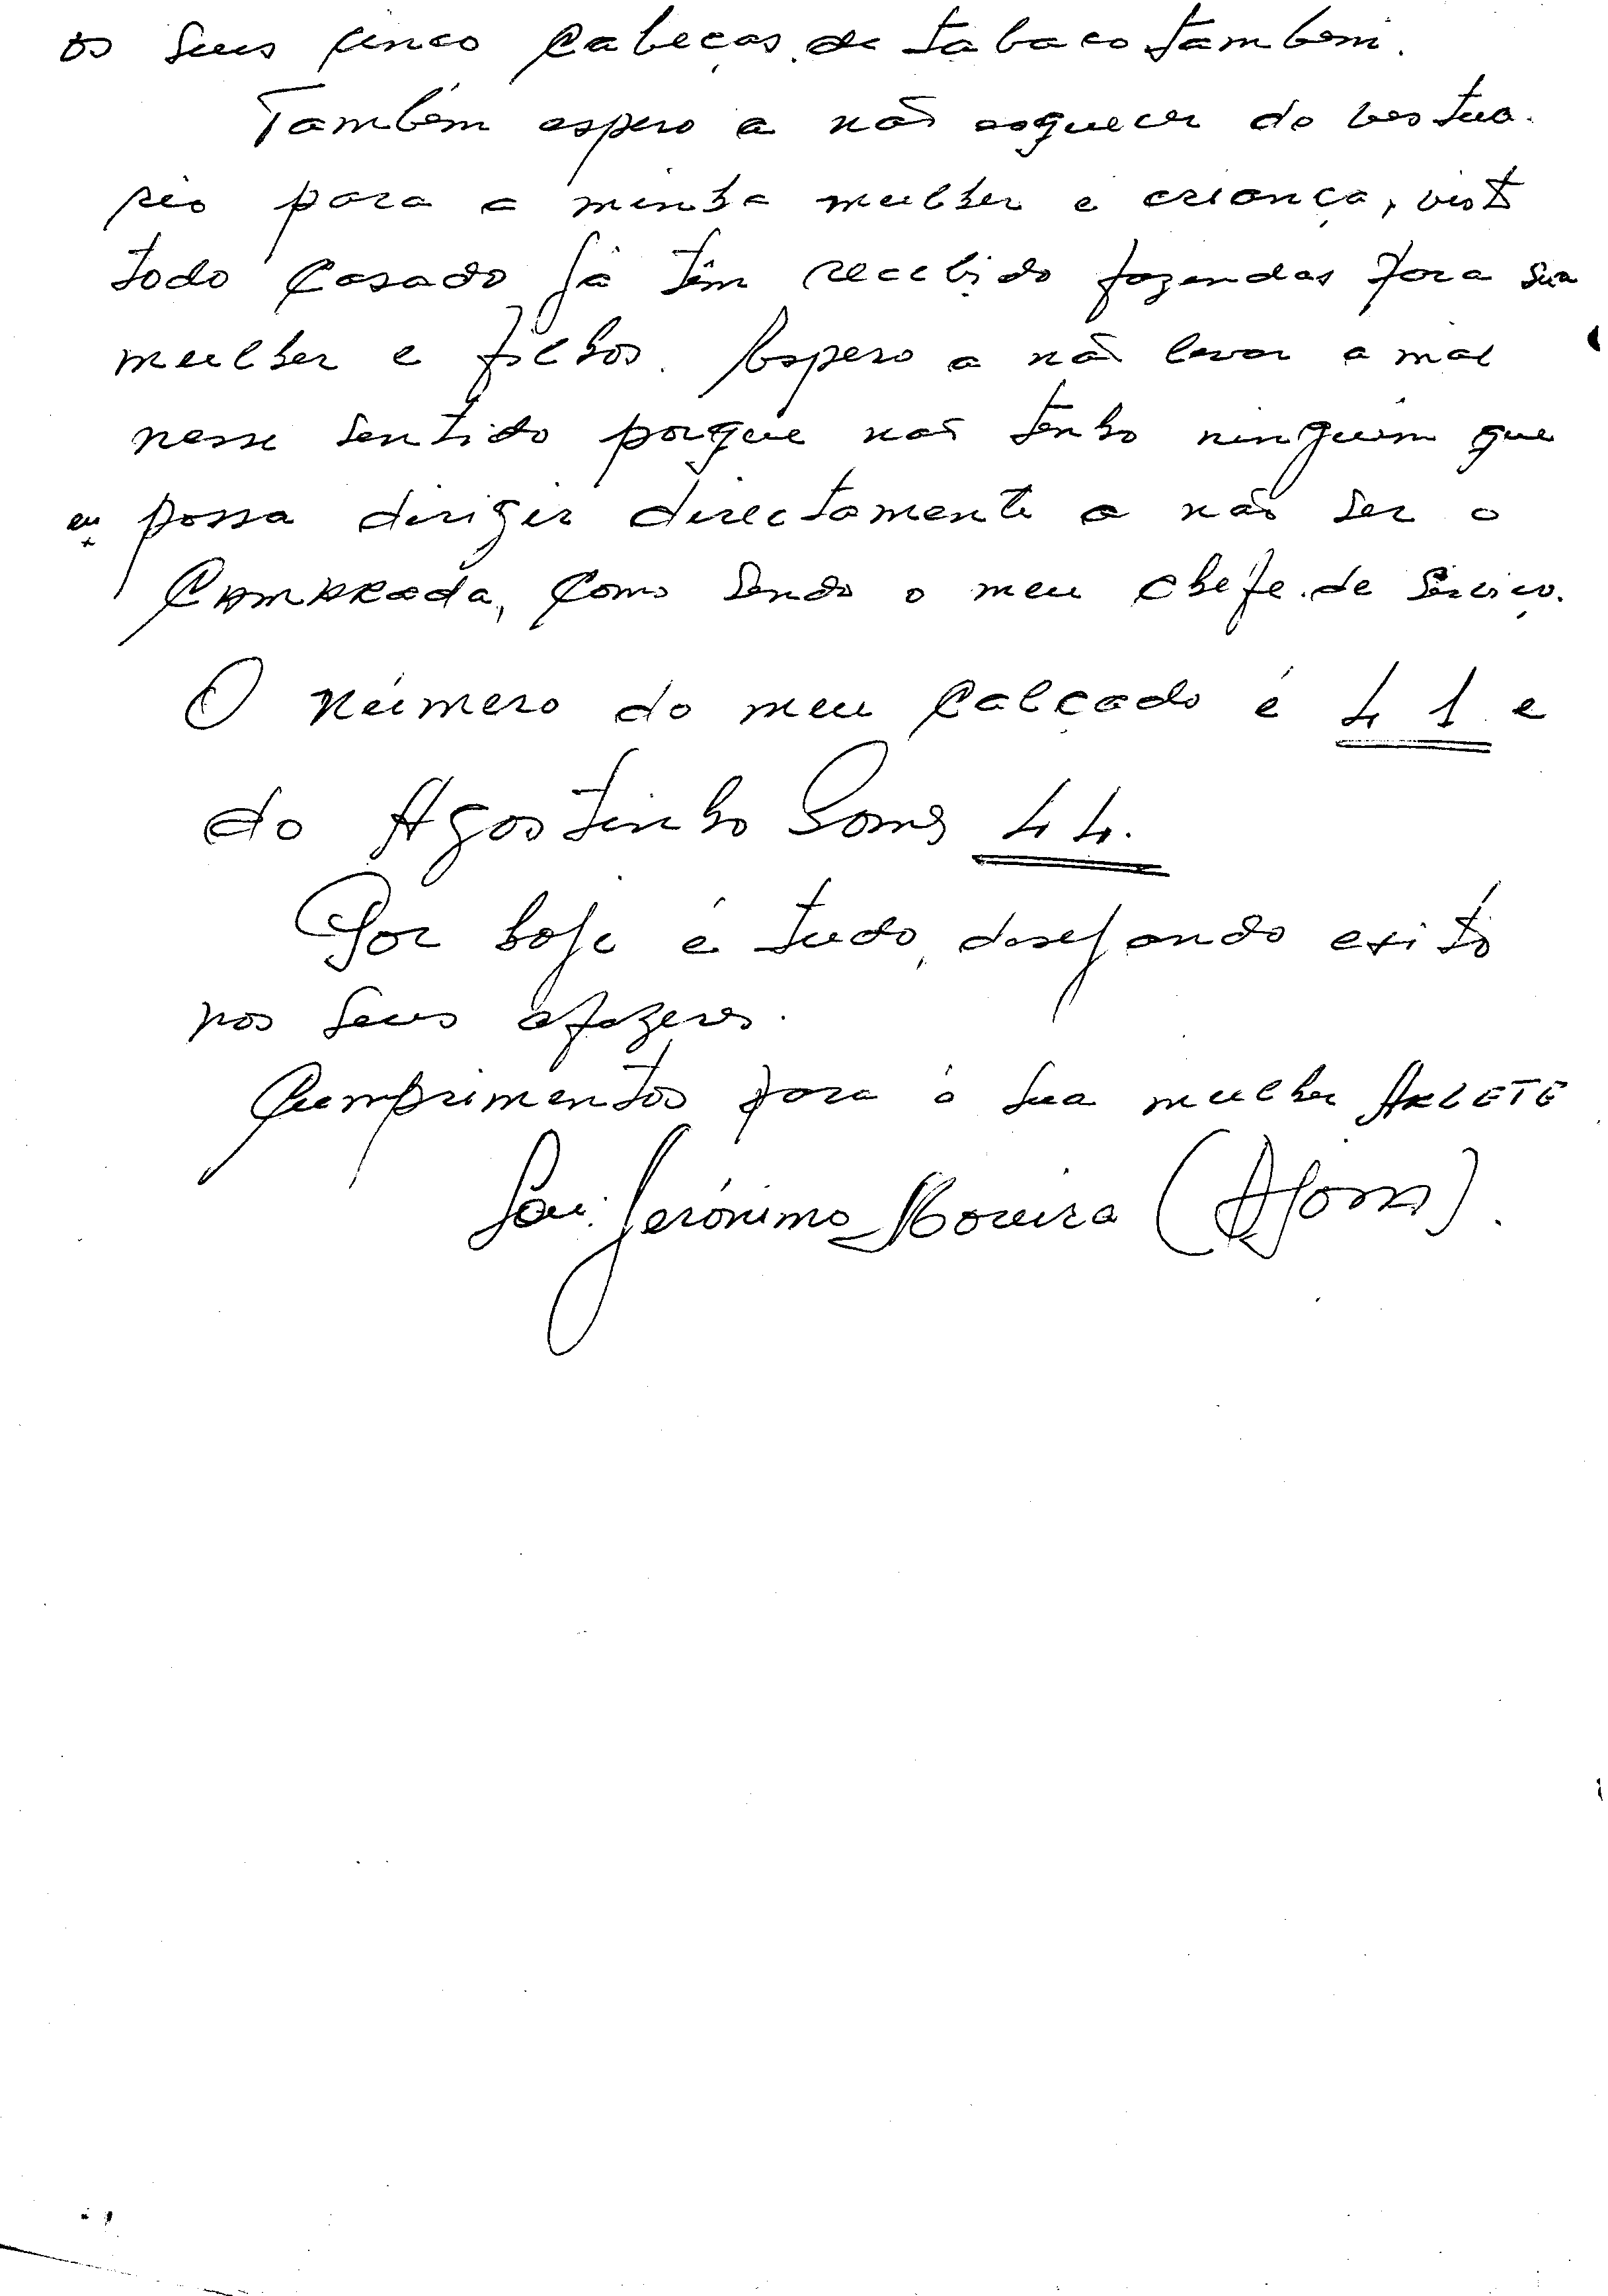 os seus cinco cabeças de tabaco também.
Também espero a não esquecer do vestuá-
rio para a minha mulher e criança, visto
todo casado já têm recebido fazendas para sua
mulher e filhos. Espero a não levar a mal
nesse sentido porque não tenho ninguém que
eu possa dirigir directamente a não ser o
CAMARada, como sendo o meu chefe de serviço.
O número do meu calçado é 41 e
do Agostinho Gomes 44.
Por hoje é tudo, desejando exito
nos seus afazeres.
Cumprimentos para à sua mulher ARLETE
Jerónimo Moreira